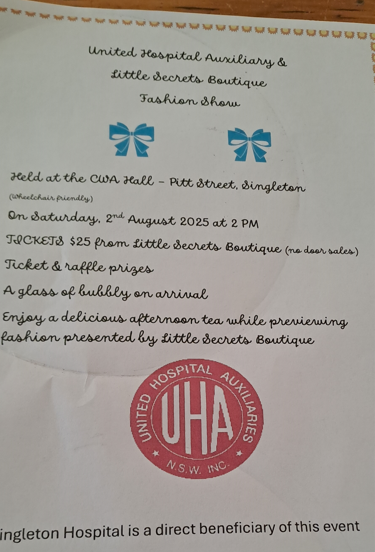 United Hospital Auxiliary &
Little Secrets Boutique
Fashion Show
Held at the CWA Hall - Pitt Street, Singleton
(Wheelchair friendly)
On Saturday, 2nd August 2025 at 2 PM
TICKETS $25 from Little Secrets Boutique (no door sales)
Ticket & raffle prizes
A glass of bubbly on arrival
Enjoy a delicious afternoon tea while previewing
fashion presented by Little Secrets Boutique
UNITED HOSPITAL AUXILIARIES
UHA
N.S.W. INC.
ingleton Hospital is a direct beneficiary of this event